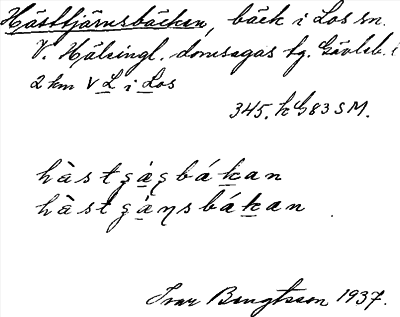 Hästtjärnsbäcken, bäck i Los sn.
V. Hälsingl. domsagas tg. Gävleb. l
2 km V L i Los
345. h G 83 SM.
hàstʒạ̀ʒbákan
hàstʒạ̀ηsbákan
Ivar Bengtsson 1937.